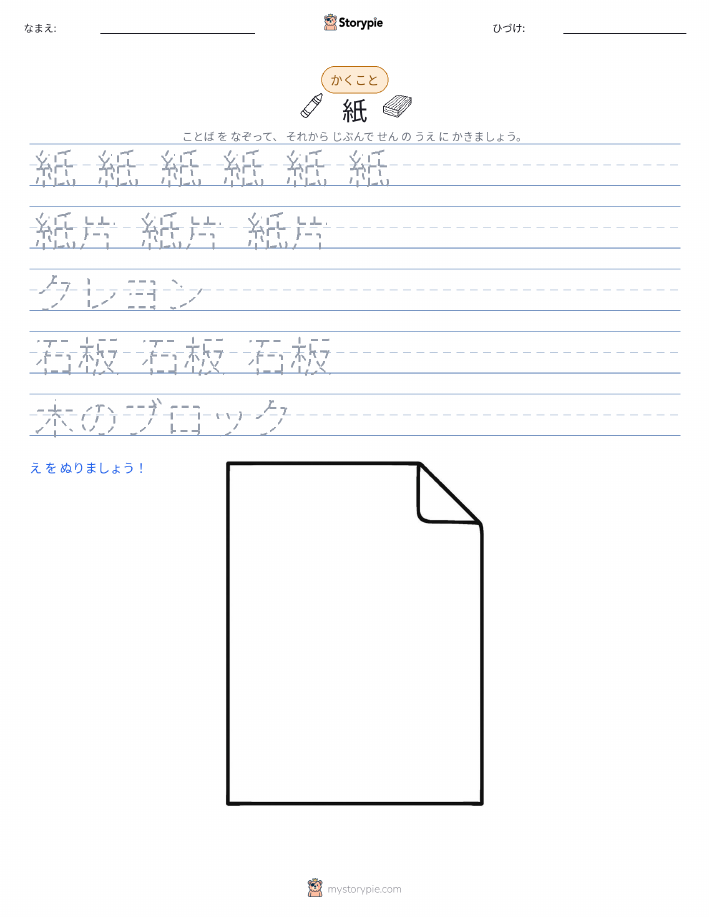 なまえ:
Storypie
ひづけ:
かくこと
紙
ことば を なぞって、 それから じぶんで せん の うえ に かきましょう。
紙 紙 紙 紙 紙 紙
紙片 紙片 紙片
クレヨン
石板 石板 石板
木のブロック
え を ぬりましょう！
mystorypie.com